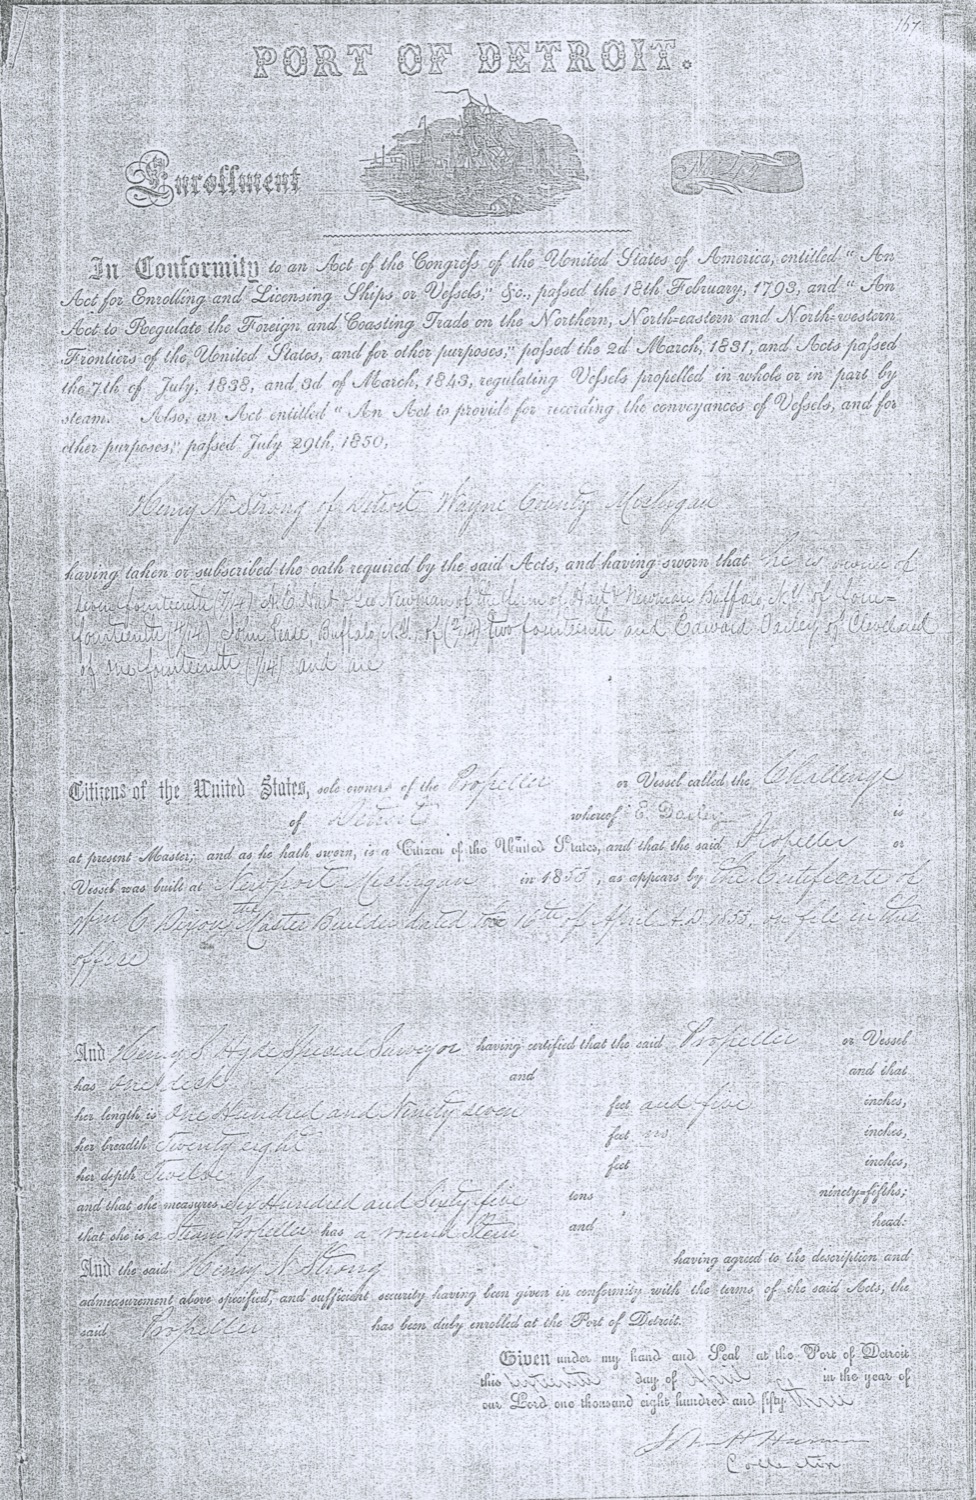 157
PORT OF DETROIT.
Enrollment
In Conformity to an Act of the Congress of the United States of America, entitled "An
Act for Enrolling and Licensing Ships or Vessels," &c., passed the 18th February, 1793, and "An
Act to Regulate the Foreign and Coasting Trade on the Northern, North-eastern and North-western
Frontiers of the United States, and for other purposes," passed the 2d March, 1831, and Acts passed
the 7th of July, 1838, and 3d of March, 1843, regulating Vessels propelled in whole or in part by
steam. Also, an Act entitled "An Act to provide for recording the conveyances of Vessels, and for
other purposes," passed July 29th, 1850,
Henry N Strong of Detroit Wayne County Michigan
having taken or subscribed the oath required by the said Acts, and having sworn that he is owner of
seven fourteenth (7/14) of the firm of & Newman Buffalo, N.Y. of four=
fourteenth (4/14) John Pease, Buffalo, N.Y. of (2/14) two fourteenth and Edward Dailey of Cleveland
of one fourteenth (1/14) and are
Citizens of the United States, sole owners of the Propeller or Vessel called the Challenge
of Detroit whereof E. Dailey is
at present Master; and as he hath sworn, is a Citizen of the United States, and that the said Propeller or
Vessel was built at Newport Michigan in 1853, as appears by the Certificate of
Wm C Dixon the Master Builder dated the 16th of April A.D. 1853, on file in this
office
And Henry S Hyde Special Surveyor having certified that the said Propeller or Vessel
has one deck and and that
her length is One Hundred and Ninety seven feet and five inches,
her breadth Twenty eight feet inches,
her depth Twelve feet inches,
and that she measures Six Hundred and Sixty five tons ninety-fifths;
that she is a Steam Propeller has a round Stern and head:
And the said Henry N Strong having agreed to the description and
admeasurement above specified, and sufficient security having been given in conformity with the terms of the said Acts, the
said Propeller has been duly enrolled at the Port of Detroit.
Given under my hand and Seal at the Port of Detroit
this sixteenth day of April in the year of
our Lord one thousand eight hundred and fifty three
Collector